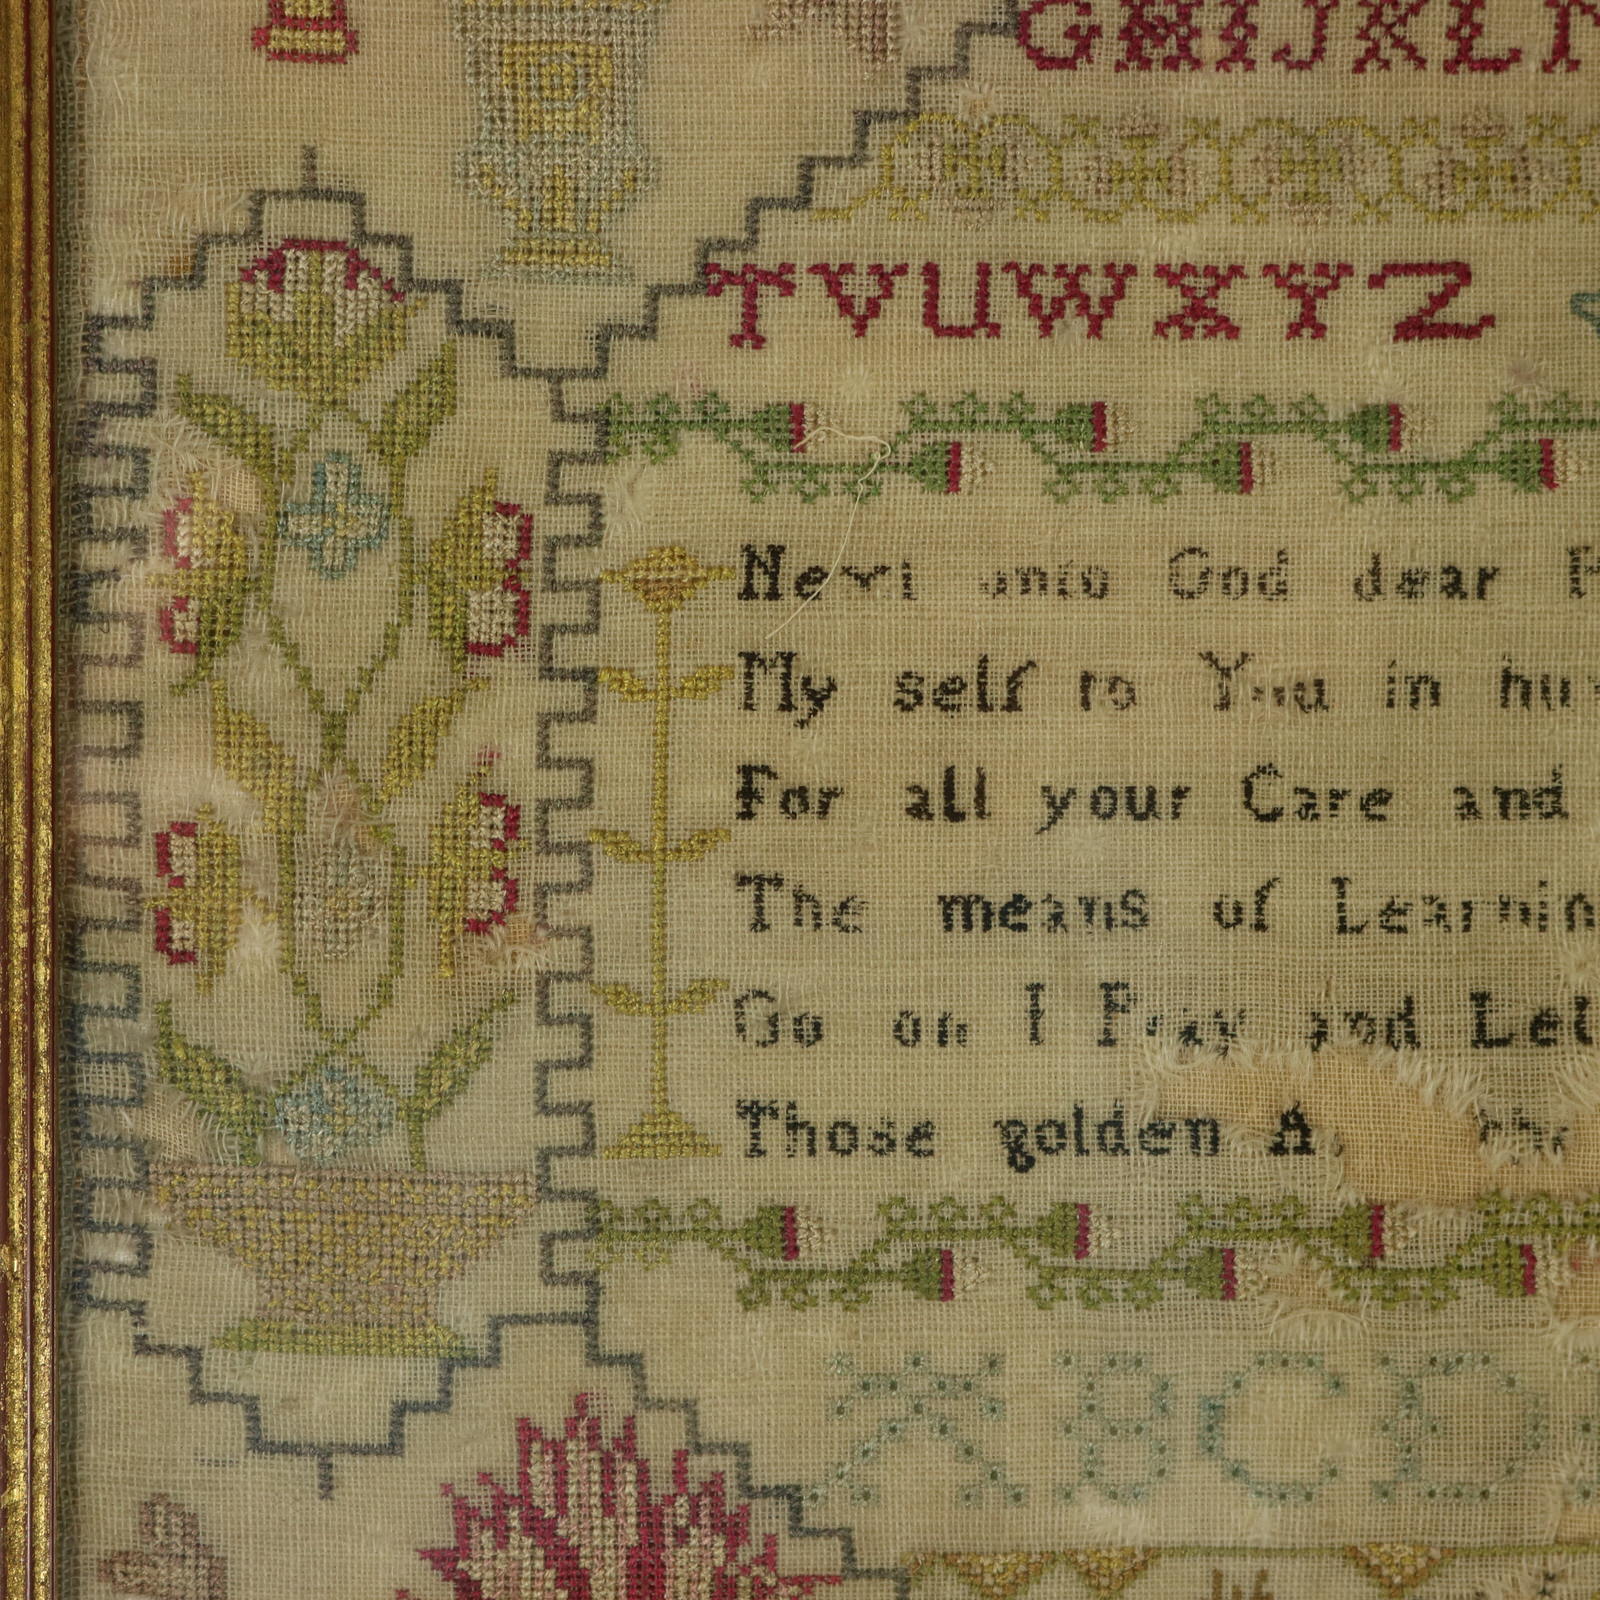 GHIJKL
TVUWXYZ
Next unto God dear
My self to You in
For all your Care and
The means of Learnin
Go on I Pray and Let
Those golden
ABCD